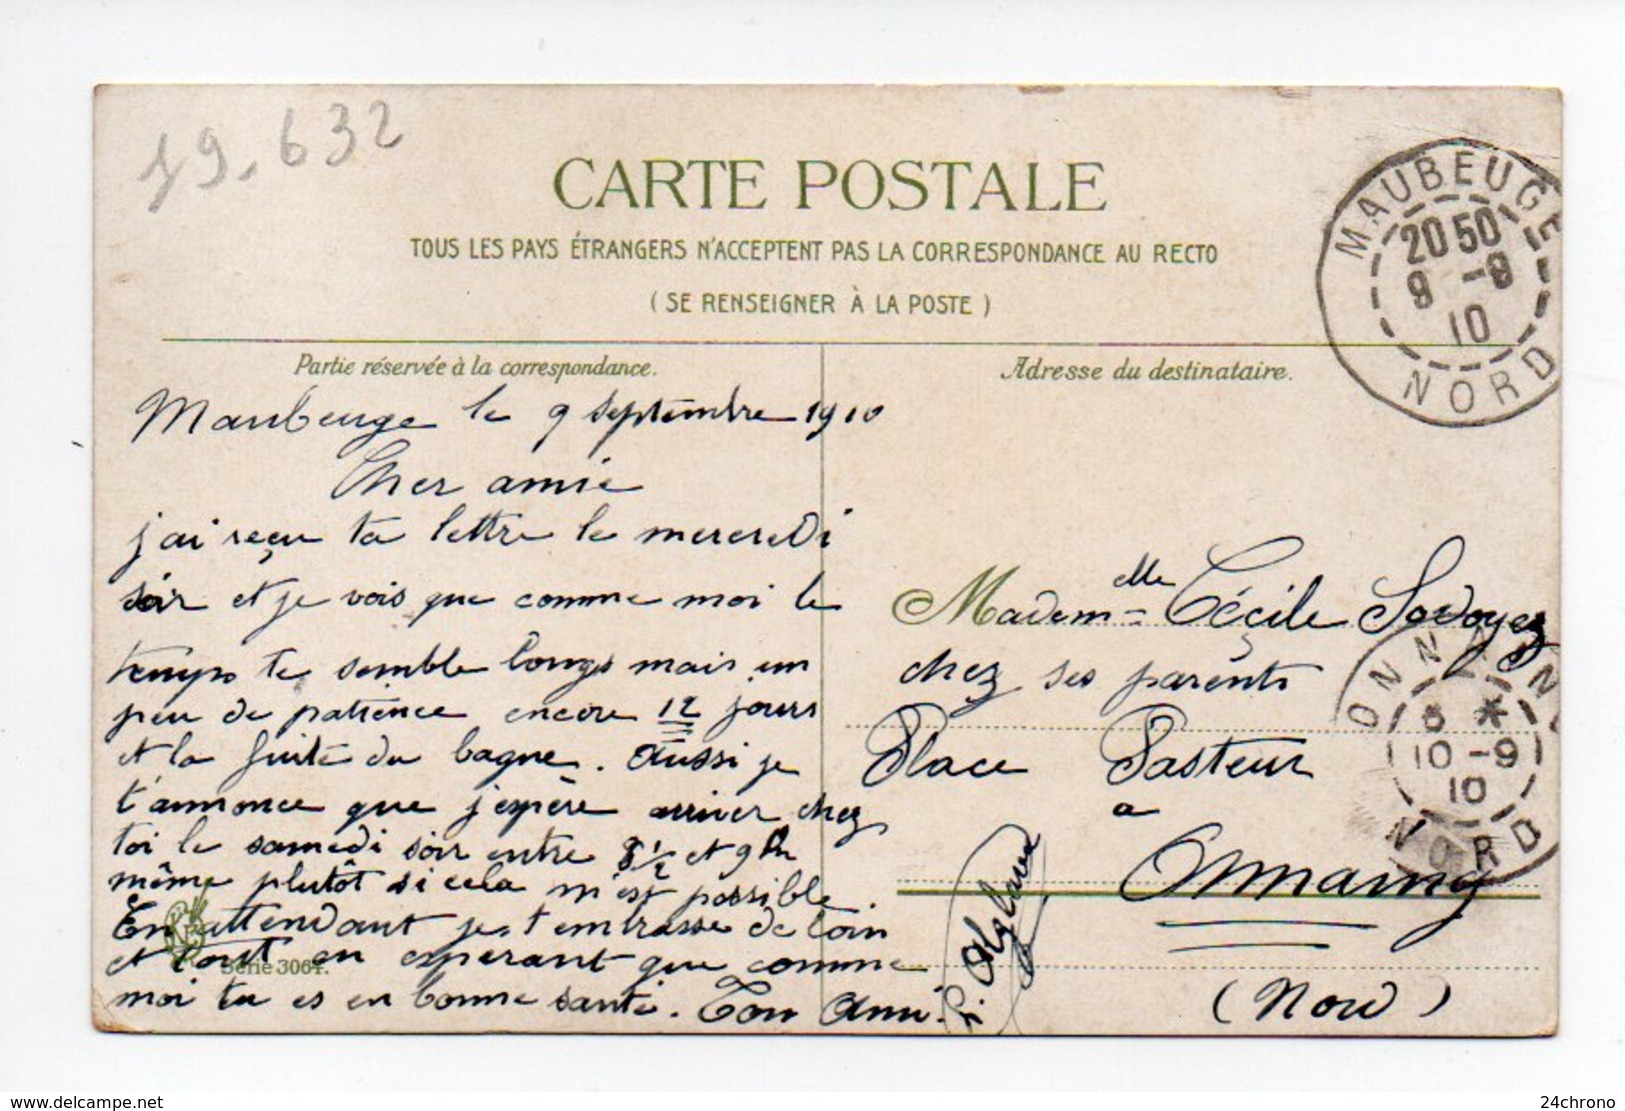 19.632
CARTE POSTALE
TOUS LES PAYS ÉTRANGERS N'ACCEPTENT PAS LA CORRESPONDANCE AU RECTO
( SE RENSEIGNER À LA POSTE )
MAUBEUGE
20 50
9 -9
10
NORD
Partie réservée à la correspondance.
Maubeuge le 9 septembre 1910
Cher amie
j'ai reçu ta lettre le mercredi
soir et je vois que comme moi le
temps te semble longs mais un
peu de patience encore 12 jours
et la fuite du bagne. Aussi je
t'annonce que j'espère arriver chez
toi le samedi soir entre 8 1/2 et 9h
même plutôt si cela m'est possible
En attendant je t'embrasse de loin
et tout en esperant que comme
moi tu es en bonne santé. Ton Ami.
Série 3064.
Adresse du destinataire.
Madem elle Cécile Sodoyez
chez ses parents
Place Pasteur
a
Onnaing
(Nord)
ONNAING
10 -9
10
NORD
www.delcampe.net
24chrono